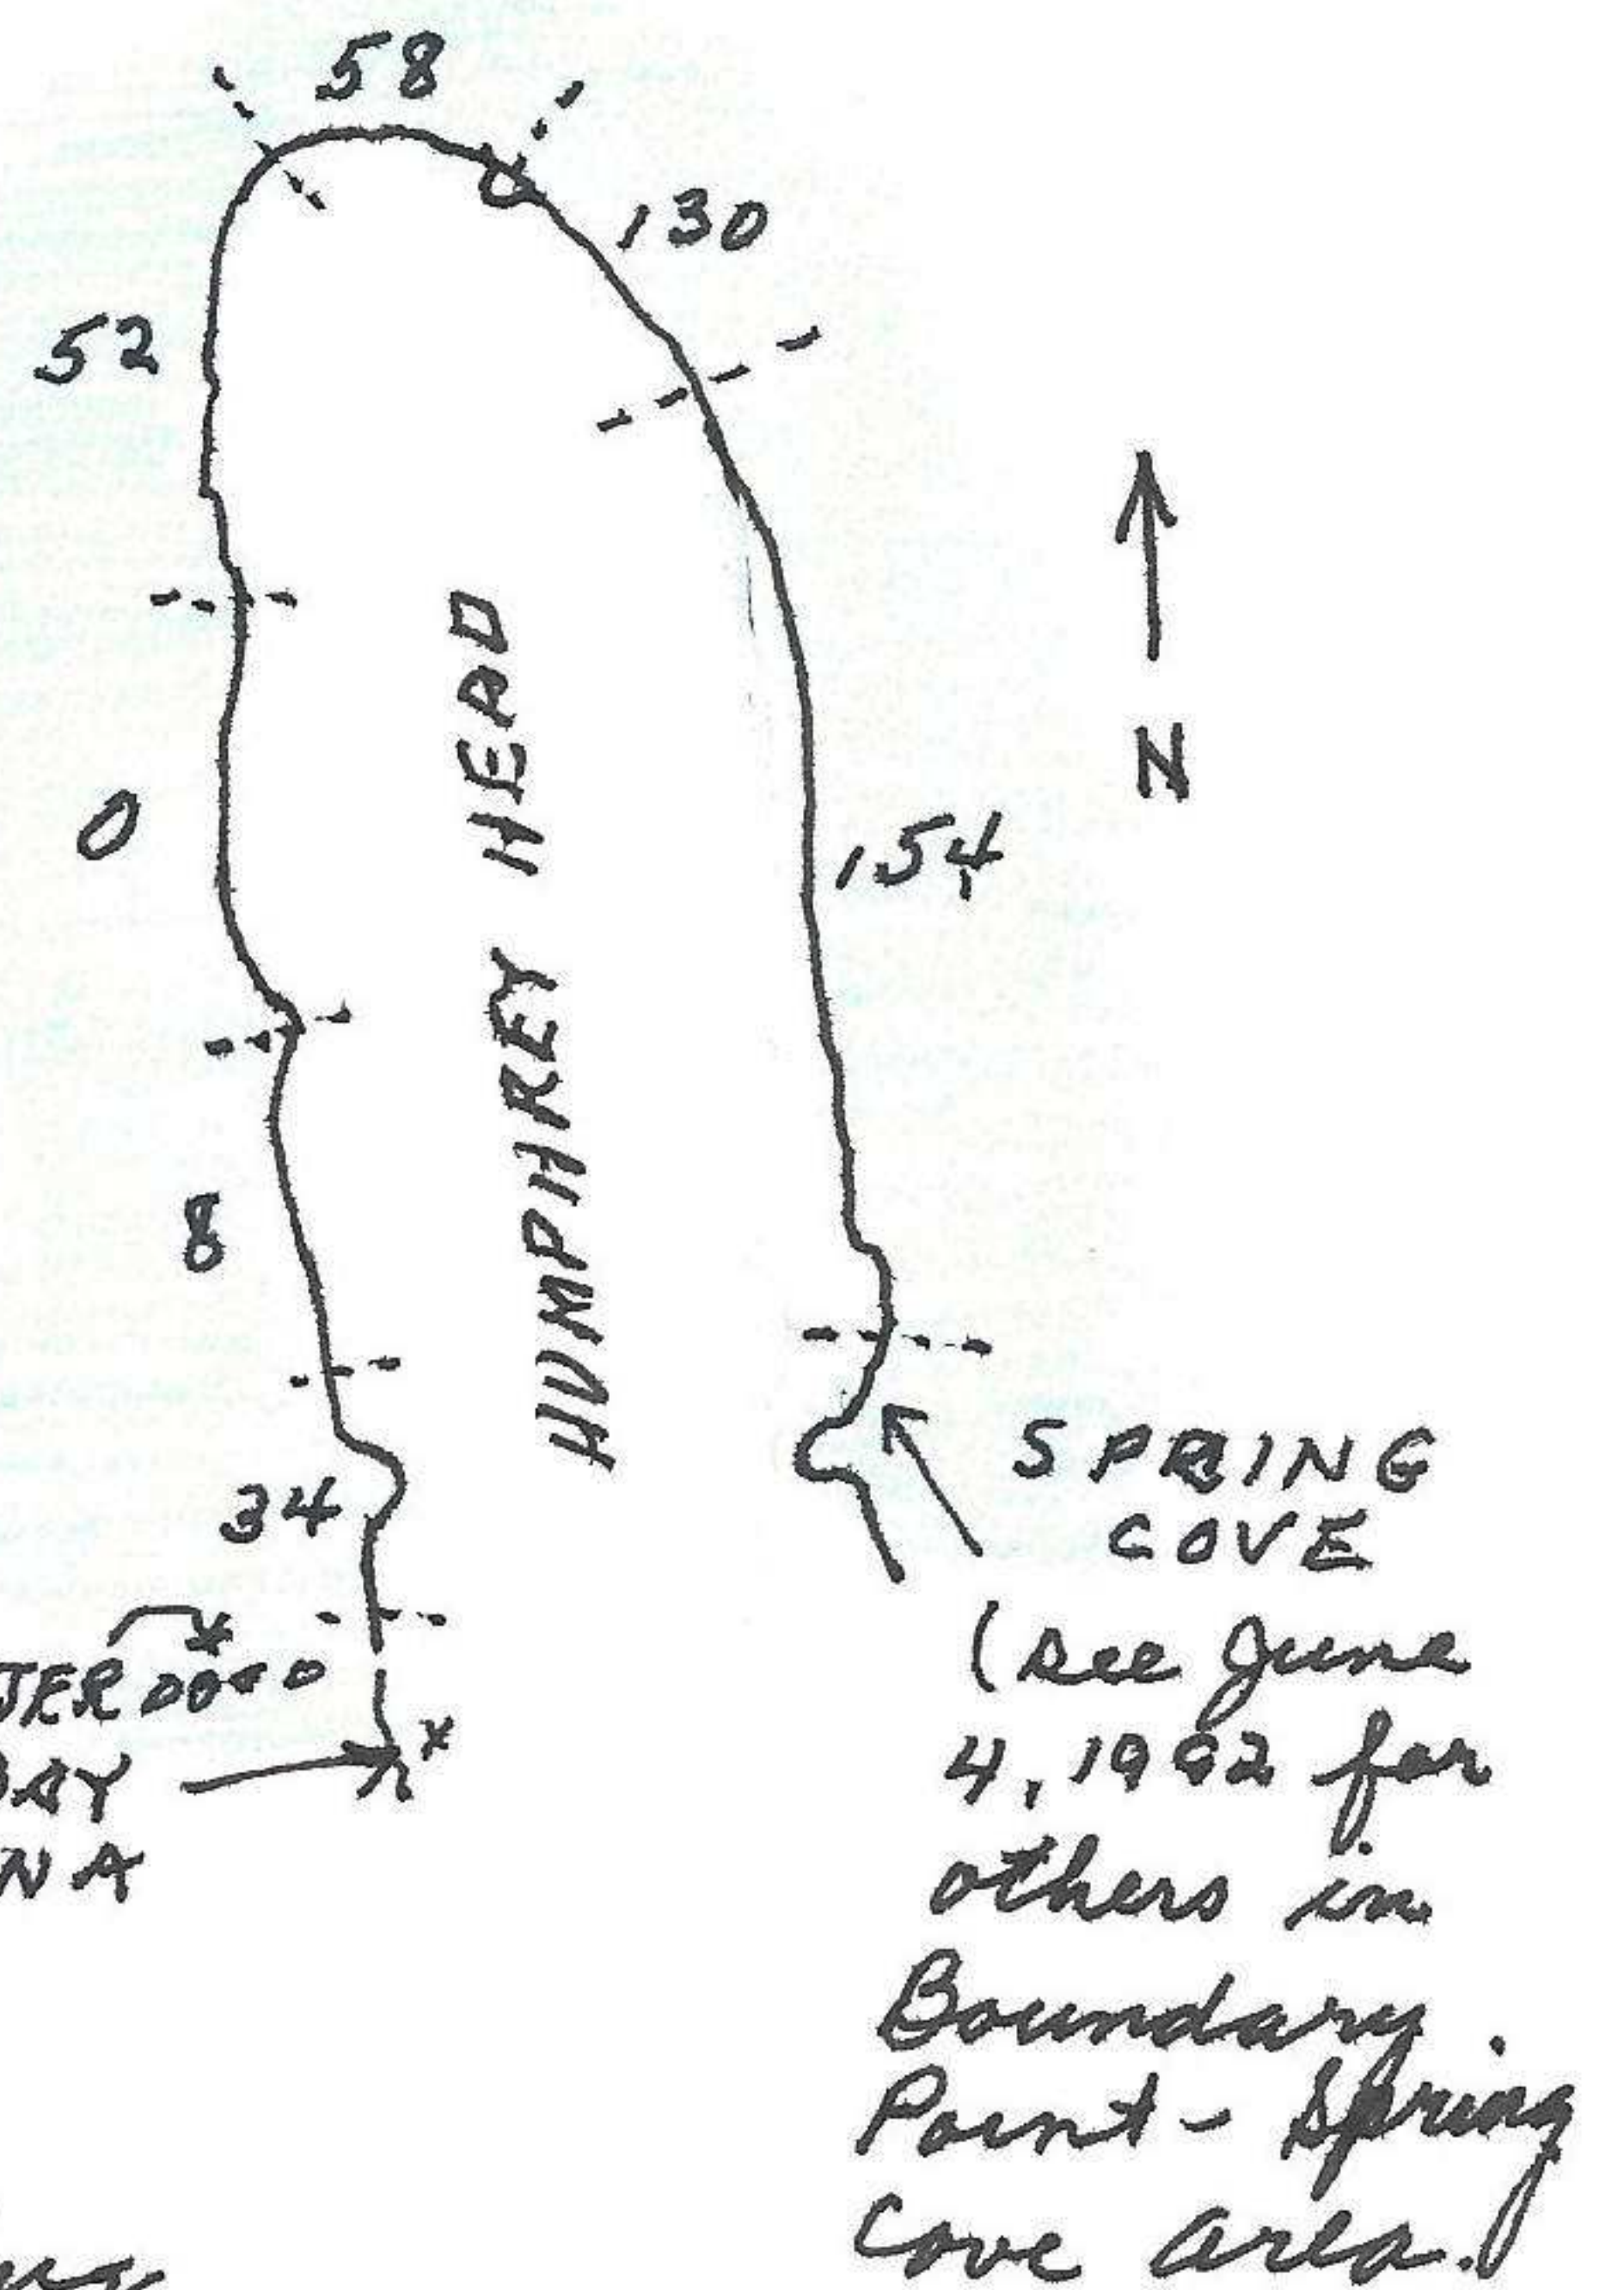 58
130
52
N
0
154
HUMPHREY HEAD
8
34
SPRING
COVE
(see June
4, 1992 for
others in
Boundary
Point - Spring
Cove area.